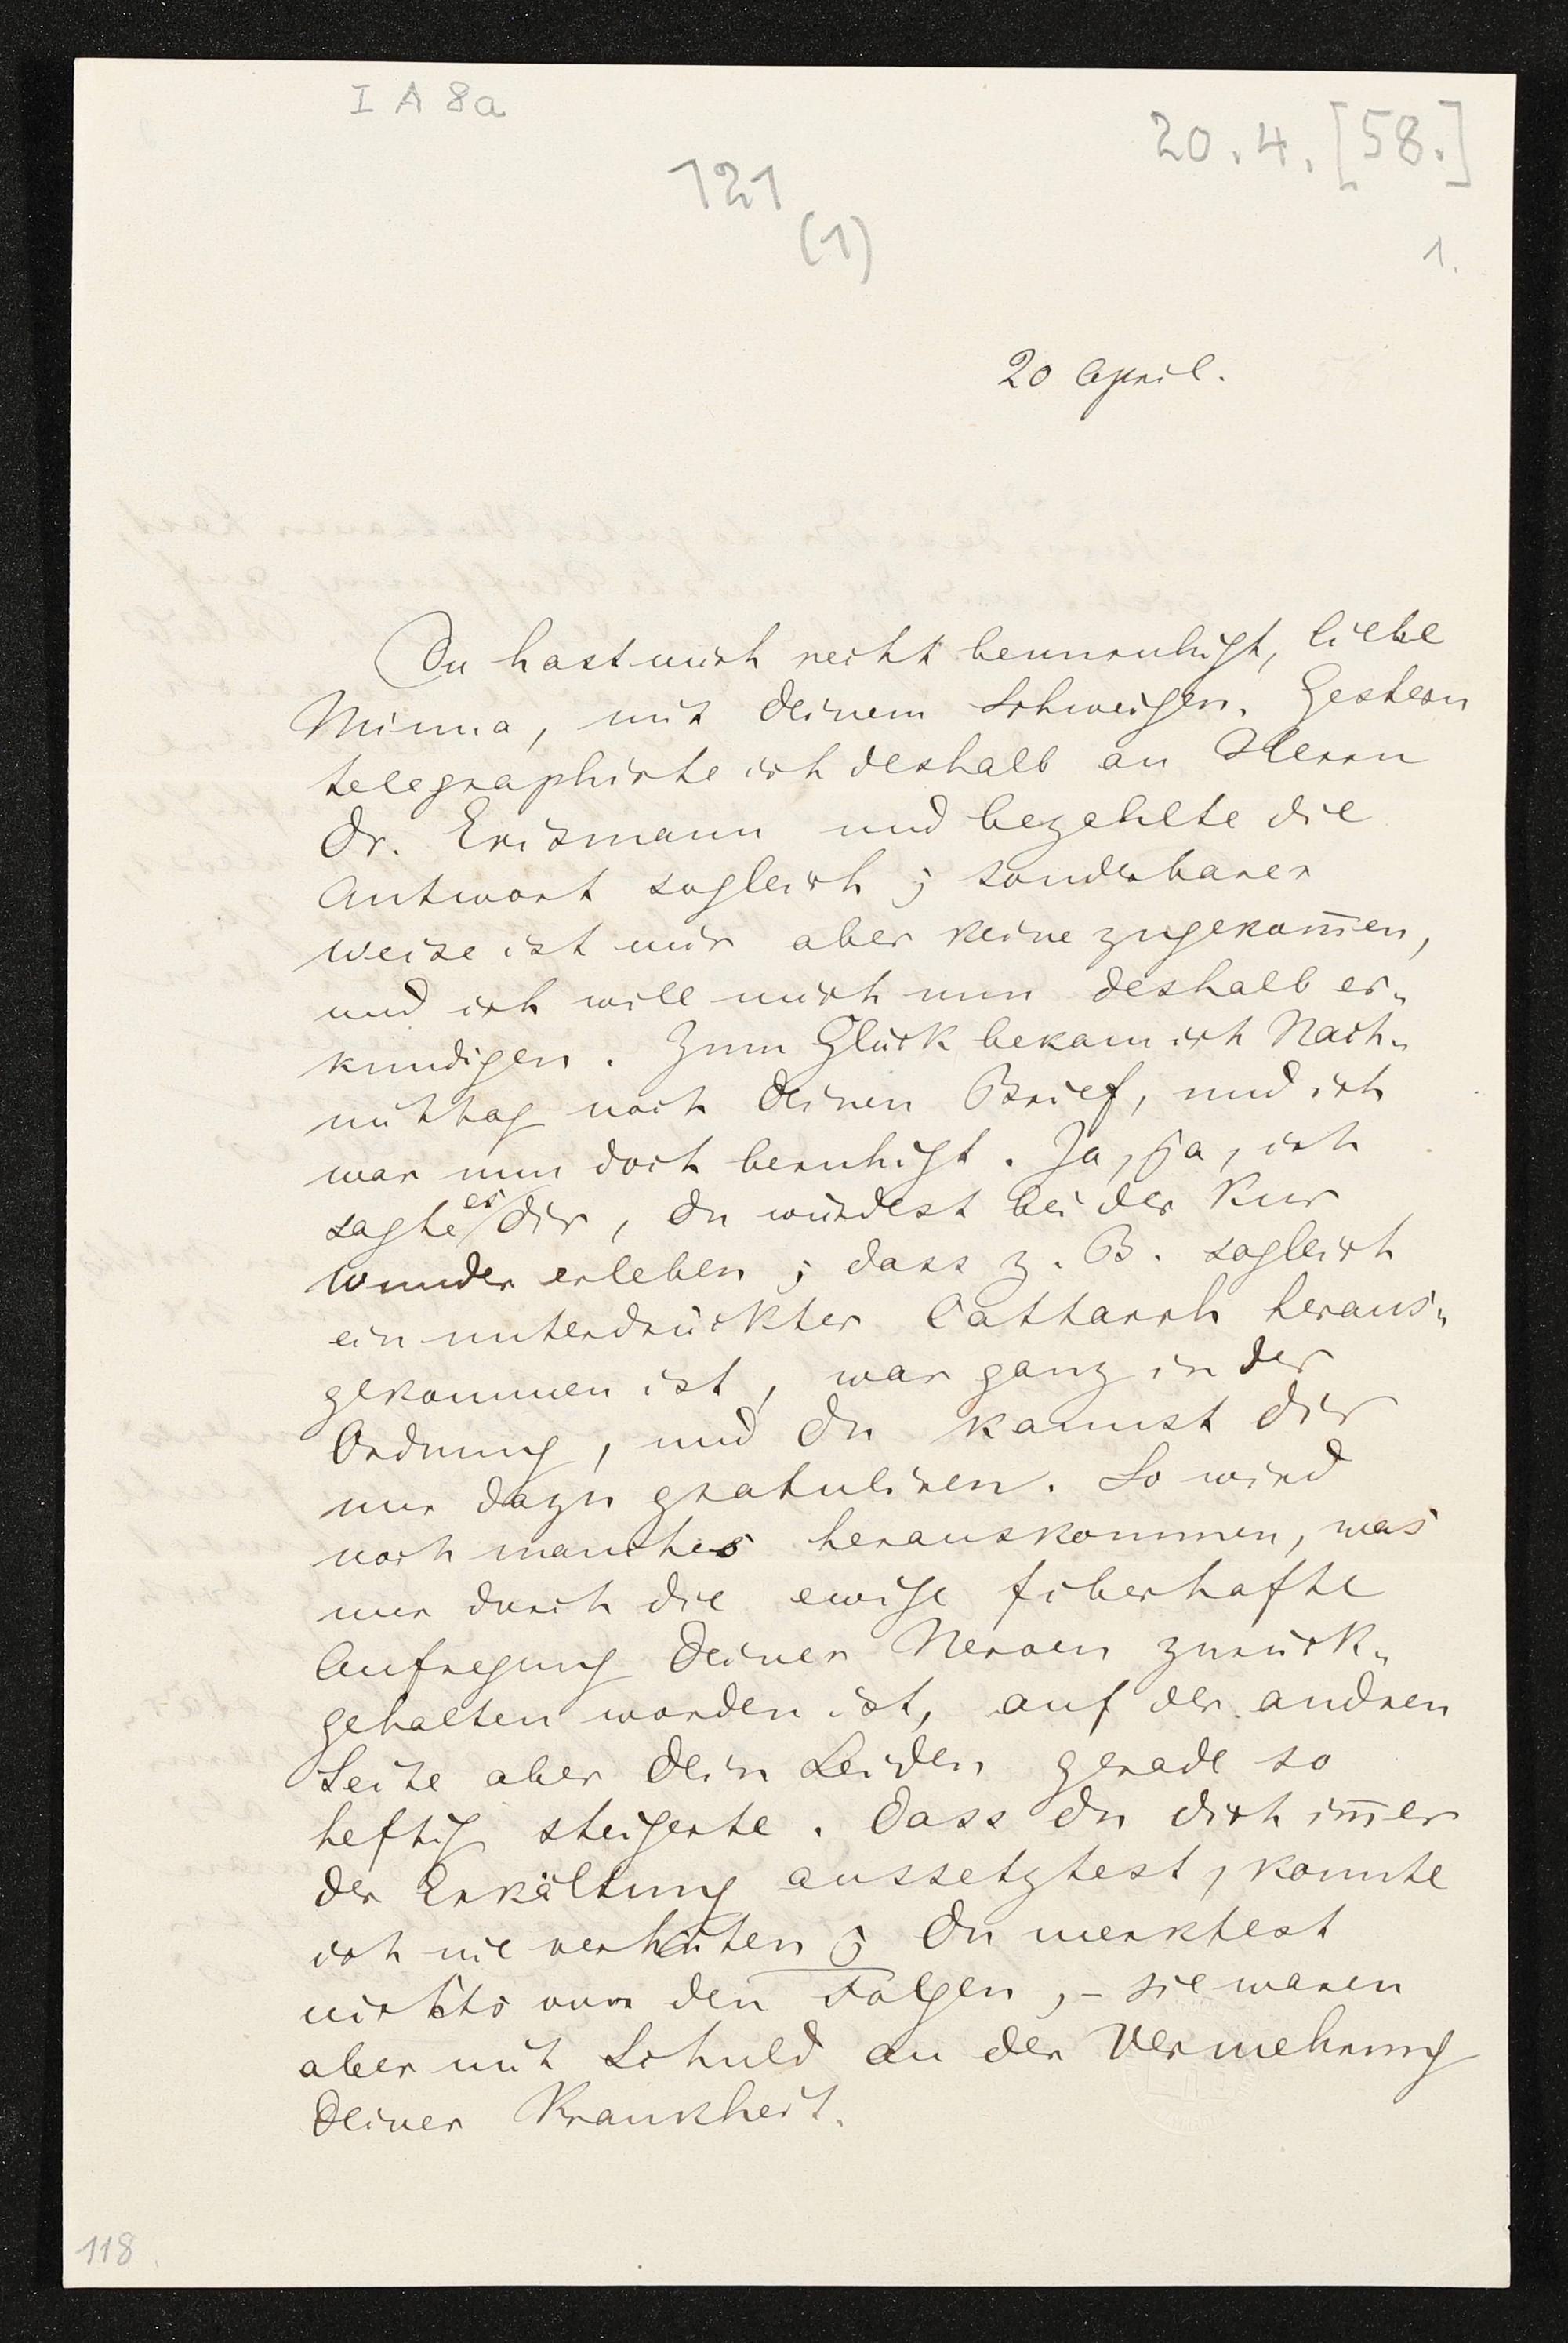 I A 8a
20.4.[58.]
121
(1)
1.
20 April.
Du hast mich recht beunruhigt, liebe
Minna, mit deinem Schweigen. Gestern
telegraphirte ich deshalb an Herrn
Dr. Erismann und bezahlte die
Antwort sogleich; sonderbarer
weise ist mir aber keine zugekom̅en,
und ich will mich nun deshalb er„
kundigen. Zum Glück bekam ich Nach„
mittag noch deinen Brief, und ich
war nun doch beruhigt. Ja, ja, ich
sagte es dir, du würdest bei der Kur
wunder erleben; dass z. B. sogleich
ein unterdrückter Cattarrh heraus„
gekommen ist, war ganz in der
Ordnung, und du kannst dir
nur dazu gratuliren. So wird
noch manches herauskommen, was
nur durch die ewige fiberhafte
Aufregung deiner Nerven zurück„
gehalten worden ist, auf der andren
Seite aber dein Leiden gerade so
heftig steigerte. Dass du dich im̅er
der Erkältung aussetztest, konnte
ich nie verhüten; du merktest
nichts von den Folgen, – sie waren
aber mit Schuld an der Vermehrung
deiner Krankheit.
118